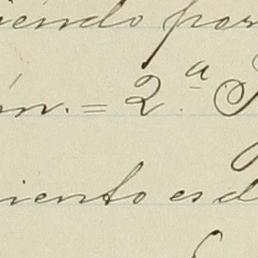 iendo por
ón. = 2.ª
iento es d